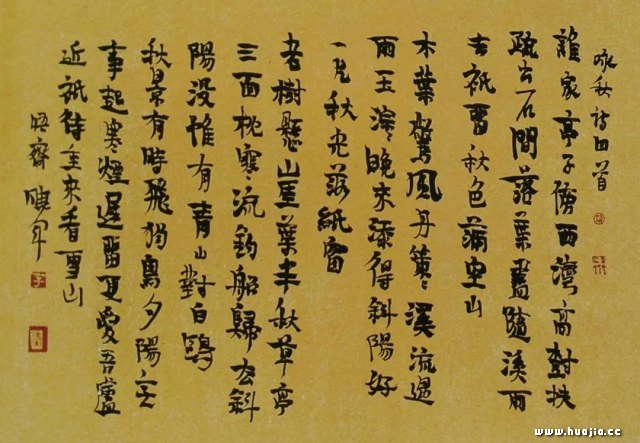 咏秋詩四首
誰家亭子傍西灣高對扶
疏出石間落葉盡隨溪雨
去衹留秋色滿空山
木葉驚風丹策〻溪流過
雨玉淙〻晚來添得斜陽好
一片秋光落紙窗
老樹懸崖葉半秋草亭
三面枕寒流釣船歸去斜
陽没惟有青山對白鷗
秋景有時飛獨鳥夕陽無
事起寒煙遲留更愛吾廬
近衹待重來看雪山
www.huajia.cc